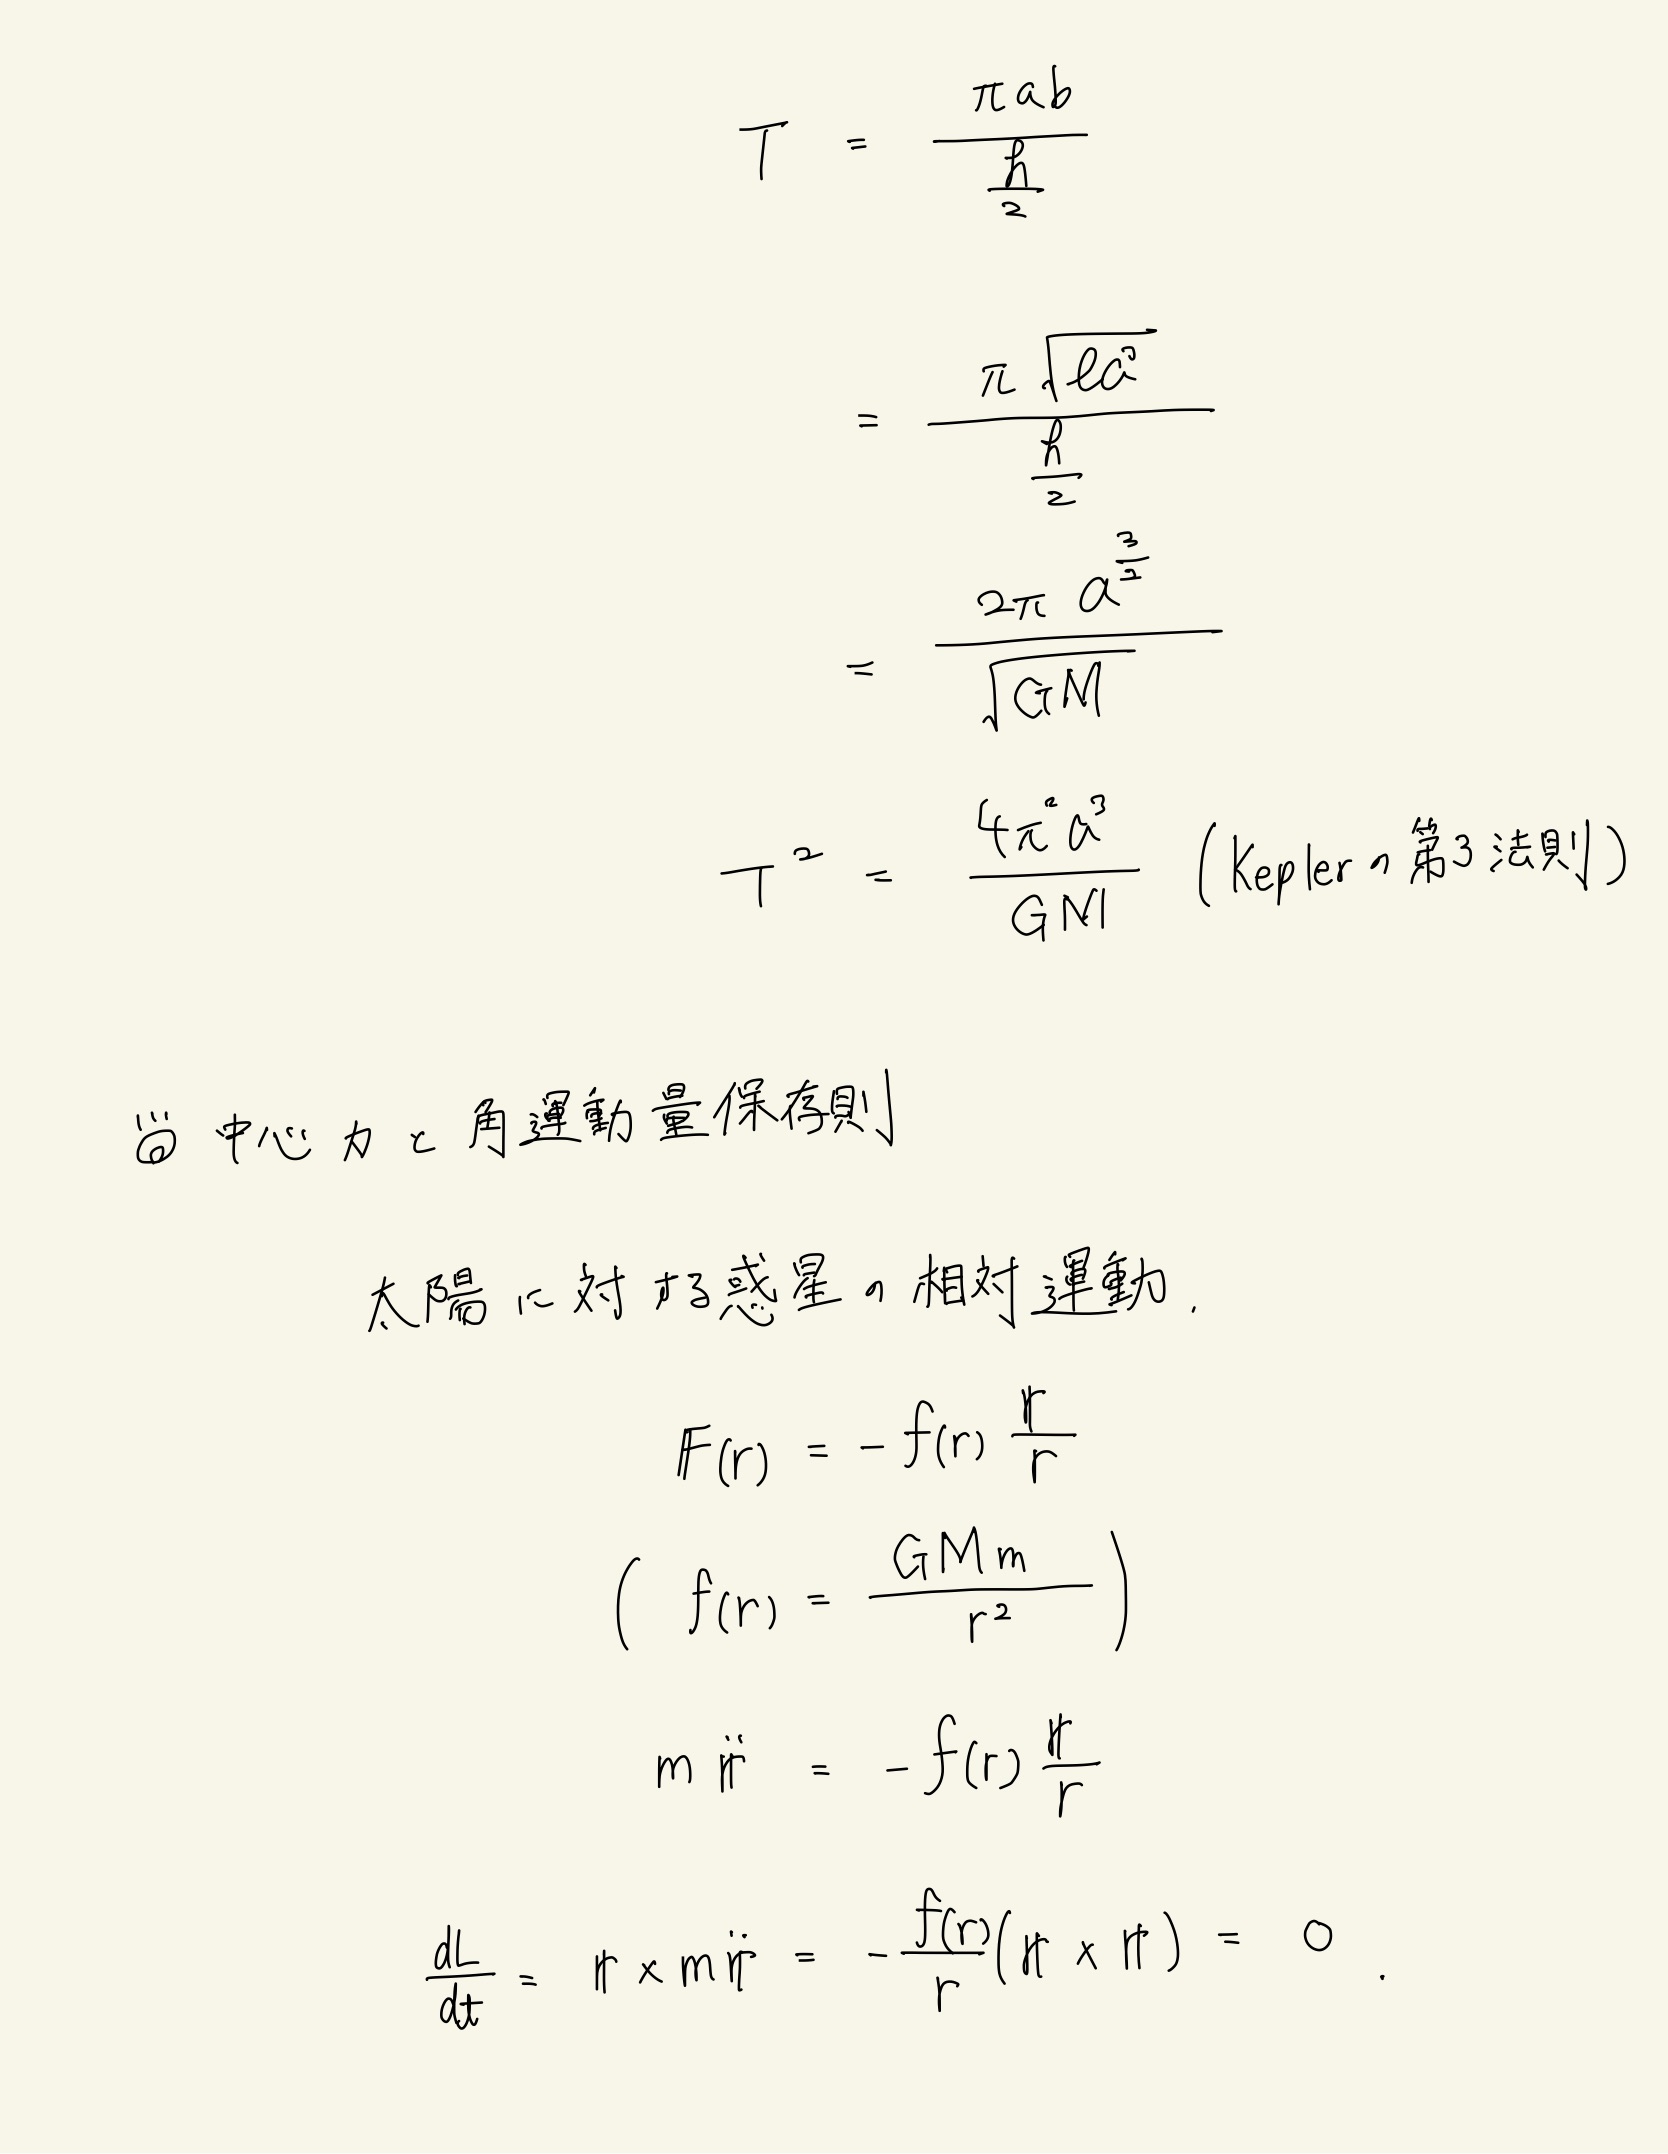 T = \frac{πab}{\frac{h}{2}}
= \frac{π\sqrt{ℓa^3}}{\frac{h}{2}}
= \frac{2π a^{\frac{3}{2}}}{\sqrt{GM}}
T^2 = \frac{4π^2a^3}{GM} (Keplerの第3法則)
中心力と角運動量保存則
太陽に対する惑星の相対運動.
𝔽(r) = -f(r) \frac{𝕣}{r}
( f(r) = \frac{GMm}{r^2} )
m \ddot{𝕣} = -f(r) \frac{𝕣}{r}
\frac{dL}{dt} = 𝕣 × m\ddot{𝕣} = -\frac{f(r)}{r}(𝕣 × 𝕣) = 0.